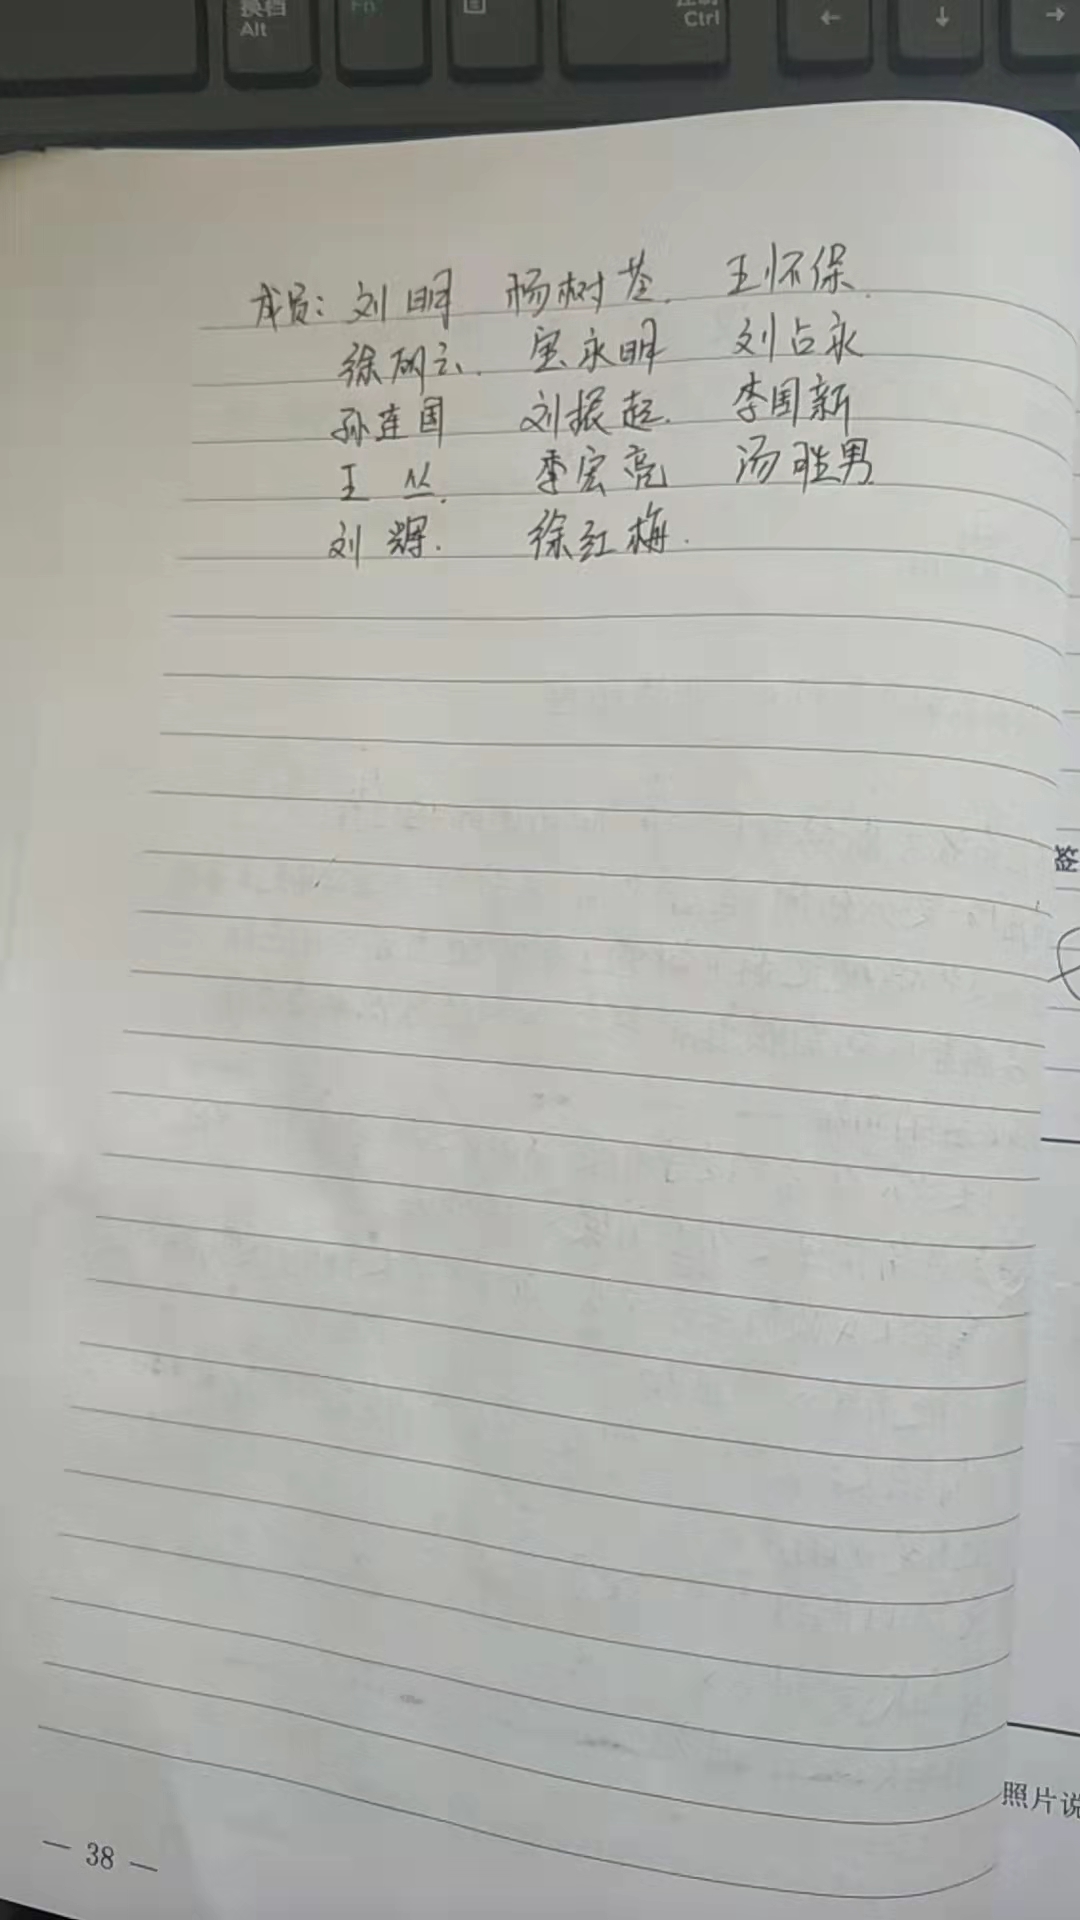 换档
Alt
Fn
Ctrl
←
↓
→
成员: 刘明 杨树荃. 王怀保.
徐丽云. 宝永明 刘占永
孙连国 刘振起. 李国新
王丛. 季宏亮 汤胜男
刘辉. 徐红梅.
签
照片说
— 38 —